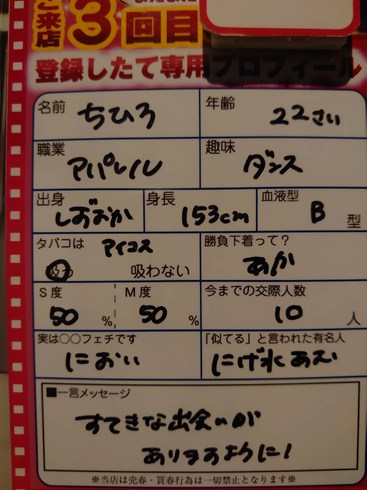 ご来店3回目
登録したて専用プロフィール
名前 ちひろ 年齢 22さい
職業 アパレル 趣味 ダンス
出身 しずおか 身長 153cm 血液型 B 型
タバコは アイコス 吸わない 勝負下着って? あか
S度 50 % M度 50 % 今までの交際人数 10 人
実は○○フェチです におい 「似てる」と言われた有名人 にげ水あむ
■一言メッセージ
すてきな出会いが
ありますように!
※当店は売春・買春行為は一切禁止となります※